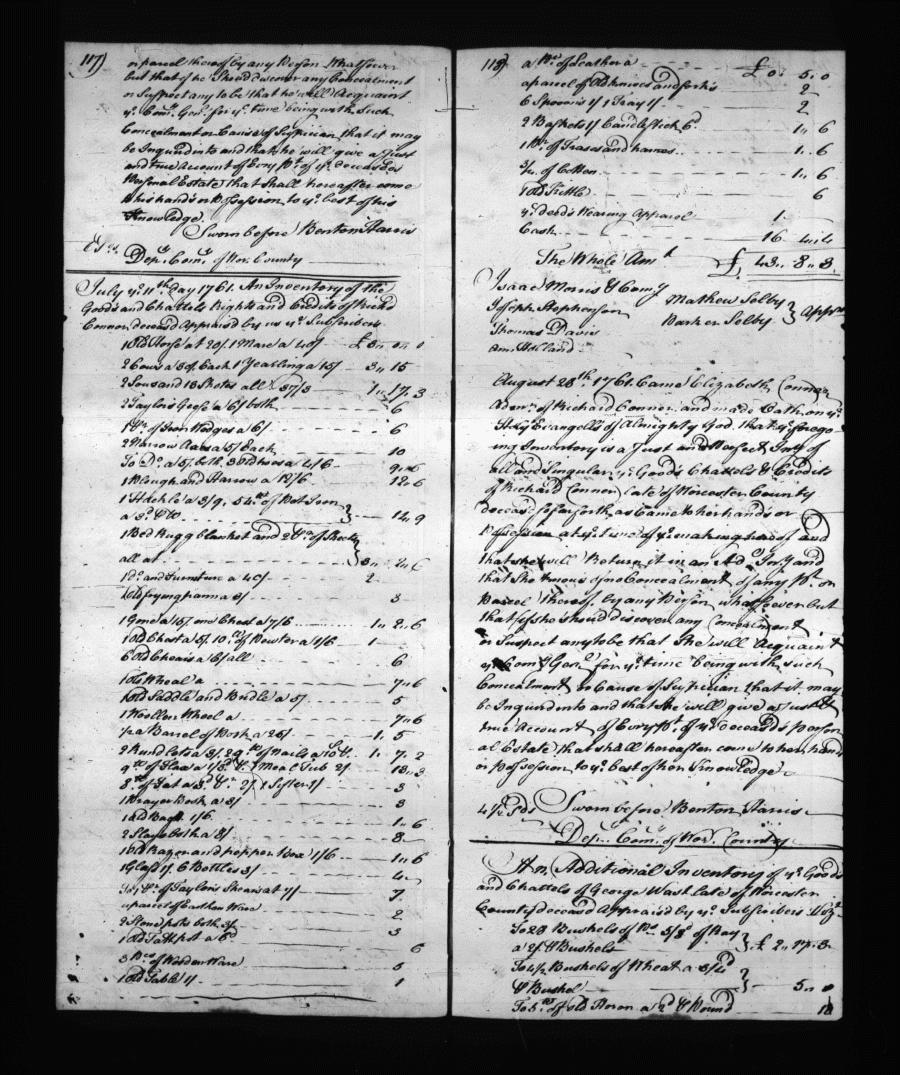 117)
or parcel thereof by any Person Whatsoever
but that if he Should discover any Concealment
or Suspect any to be that he will Acquaint
ye. Comy. Genl. for ye. time being with Such
Concealment or Cause of Suspician that it may
be Inquired into and that he will give a Just
and true Account of Every Pt. of ye. deceasds
Personal Estate that Shall hereafter come
to his hands or Possession to ye. best of his
Knowledge
Sworn before Benton Harris
Depy. Comy. of Wor. County
July ye. 11th day 1761. An Inventory of the
Goods and Chattels Rights and Credits of Richd
Connor deceasd Appraisd by us ye. Subscribers
1 Old Horse at 20/. 1 Mare a 40/ £ 3 ,, 0 ,, 0
2 Cows a 30/. Each 1 Yearling a 15/ 3 ,, 15
2 Sows and 18 Shotes all 37/3 1 ,, 17 ,, 3
2 Taylors Geese a 6/ both 6
1 Pr. of Iron Wedges a 6/ 6
2 Narrow Axes a 5/ Each 10
To Do. a 5/. both 3 Old hoes a 4/6 9 ,, 6
1 Plough and Harrow a 12/6 12 ,, 6
1 Hackle a 3/9, 54 of Pot Iron
14 ,, 9
1 Bed Rugg blanket and 2 Pr. of Sheets
all at 3 ,, 2 ,, 6
1 do. and Furniture a 40/ 2
1 old frying pann a 3/ 3
1 Gun a 15/. one Chest a 7/6 1 ,, 2 ,, 6
1 Old Chest a 5/. 10 of Pewter a 1/6 1
6 Old Chears a 6/ all 6
1 old Wheal a 7 ,, 6
1 Old Saddle and Bridle a 5/ 5
1 Woollen Wheel a 7 ,, 6
1/2 a Barrel of Pork a 25/ 1 ,, 5
2 Rundlets a 3/. 29 of Nails 1 ,, 7 ,, 2
9 of Flax a 1 Meal Tub 2/ 13 ,, 3
8 of Fat a 3 1 Sifter 1/ 3
1 Prayer Book a 3/ 3
1 old Bagg 1/6 1 ,, 6
2 Slays both a 8/ 8
1 Old Razer and pepper Box 1/6 1 ,, 6
1 Glass 1/. 6 Bottles 3/ 4
To 1 Pr. of Taylors Shears at 7/ 7
a parcel of Earthen Ware 2
2 Stone pots both 3/ 3
1 Old Tabl pot a 6d 6
3 Pcs. of Wooden Ware 5
1 Old Table 1/ 1
118)
a Pce. of Leather a £ 0 ,, 5 ,, 0
a parcel of Old knives and forks 2
6 Spoons 1/ 1 Tray 1/ 2
2 Baskets 1/ Candlestick 6d 1 ,, 6
1 Pr. of Trases and hames 1 ,, 6
of Cotton 1 ,, 6
1 old Kettle 6
ye. decds Wearing Apparel 1
Cash 16 ,, 4 ,, 4
The Whole Amt £ 43 ,, 8 ,, 8
Isaac Morris & Comy
Joseph Stephenson
Thomas Davis
Ann Holland
Mathew Selby
Parker Selby } Apprs
August 28th. 1761. Came Elizabeth Connor
Admx. of Richard Connor and made Oath on ye.
Holy Evangells of Almighty God. that ye. forego
ing Inventory is a Just and Perfect Invy of
all and Singular ye. Goods Chattels & Credits
of Richard Connor late of Worcester County
deceasd so far forth as Came to her hands or
Possession at ye. time of ye. making thereof and
that she will Return it in an Add. Invy and
that She knows of no Concealment of any Pt. or
Parcel thereof, by any Person whatsoever but
that if she should discover any Concealment
or Suspect any to be that She will Acquaint
ye. Comy Genl. for ye. time being with such
Concealment or Cause of Suspician that it may
be Inquired into and that she will give a Just &
true Account of Every Pt. of ye. deceasds Person
al Estate that shall hereafter come to her hand
or possession to ye. best of her Knowledge
Sworn before Benton Harris
Depy. Comy. of Wor. County
An Additional Inventory of ye. Goods
and Chattels of George Wast late of Worcester
County deceasd Appraisd by ye. Subscribers Vizt.
To 28 Bushels of
a 2/. P Bushel } £ 2 ,, 17 ,, 3
To 1 1/2 Bushels of Wheat a 3/4d
P Bushel } 5 ,, 0
To 5 of old Iron a 2d P Pound 10